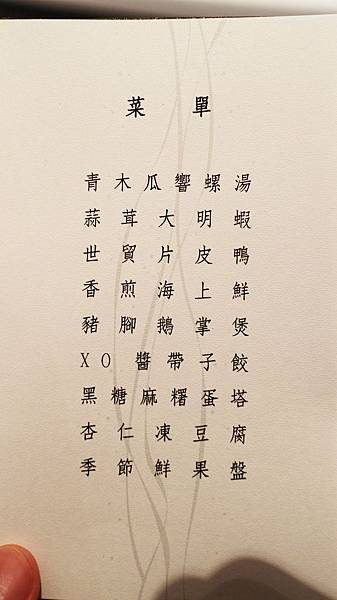 菜單
青木瓜響螺湯
蒜茸大明蝦
世貿片皮鴨
香煎海上鮮
豬腳鵝掌煲
XO醬帶子餃
黑糖麻糬蛋塔
杏仁凍豆腐
季節鮮果盤